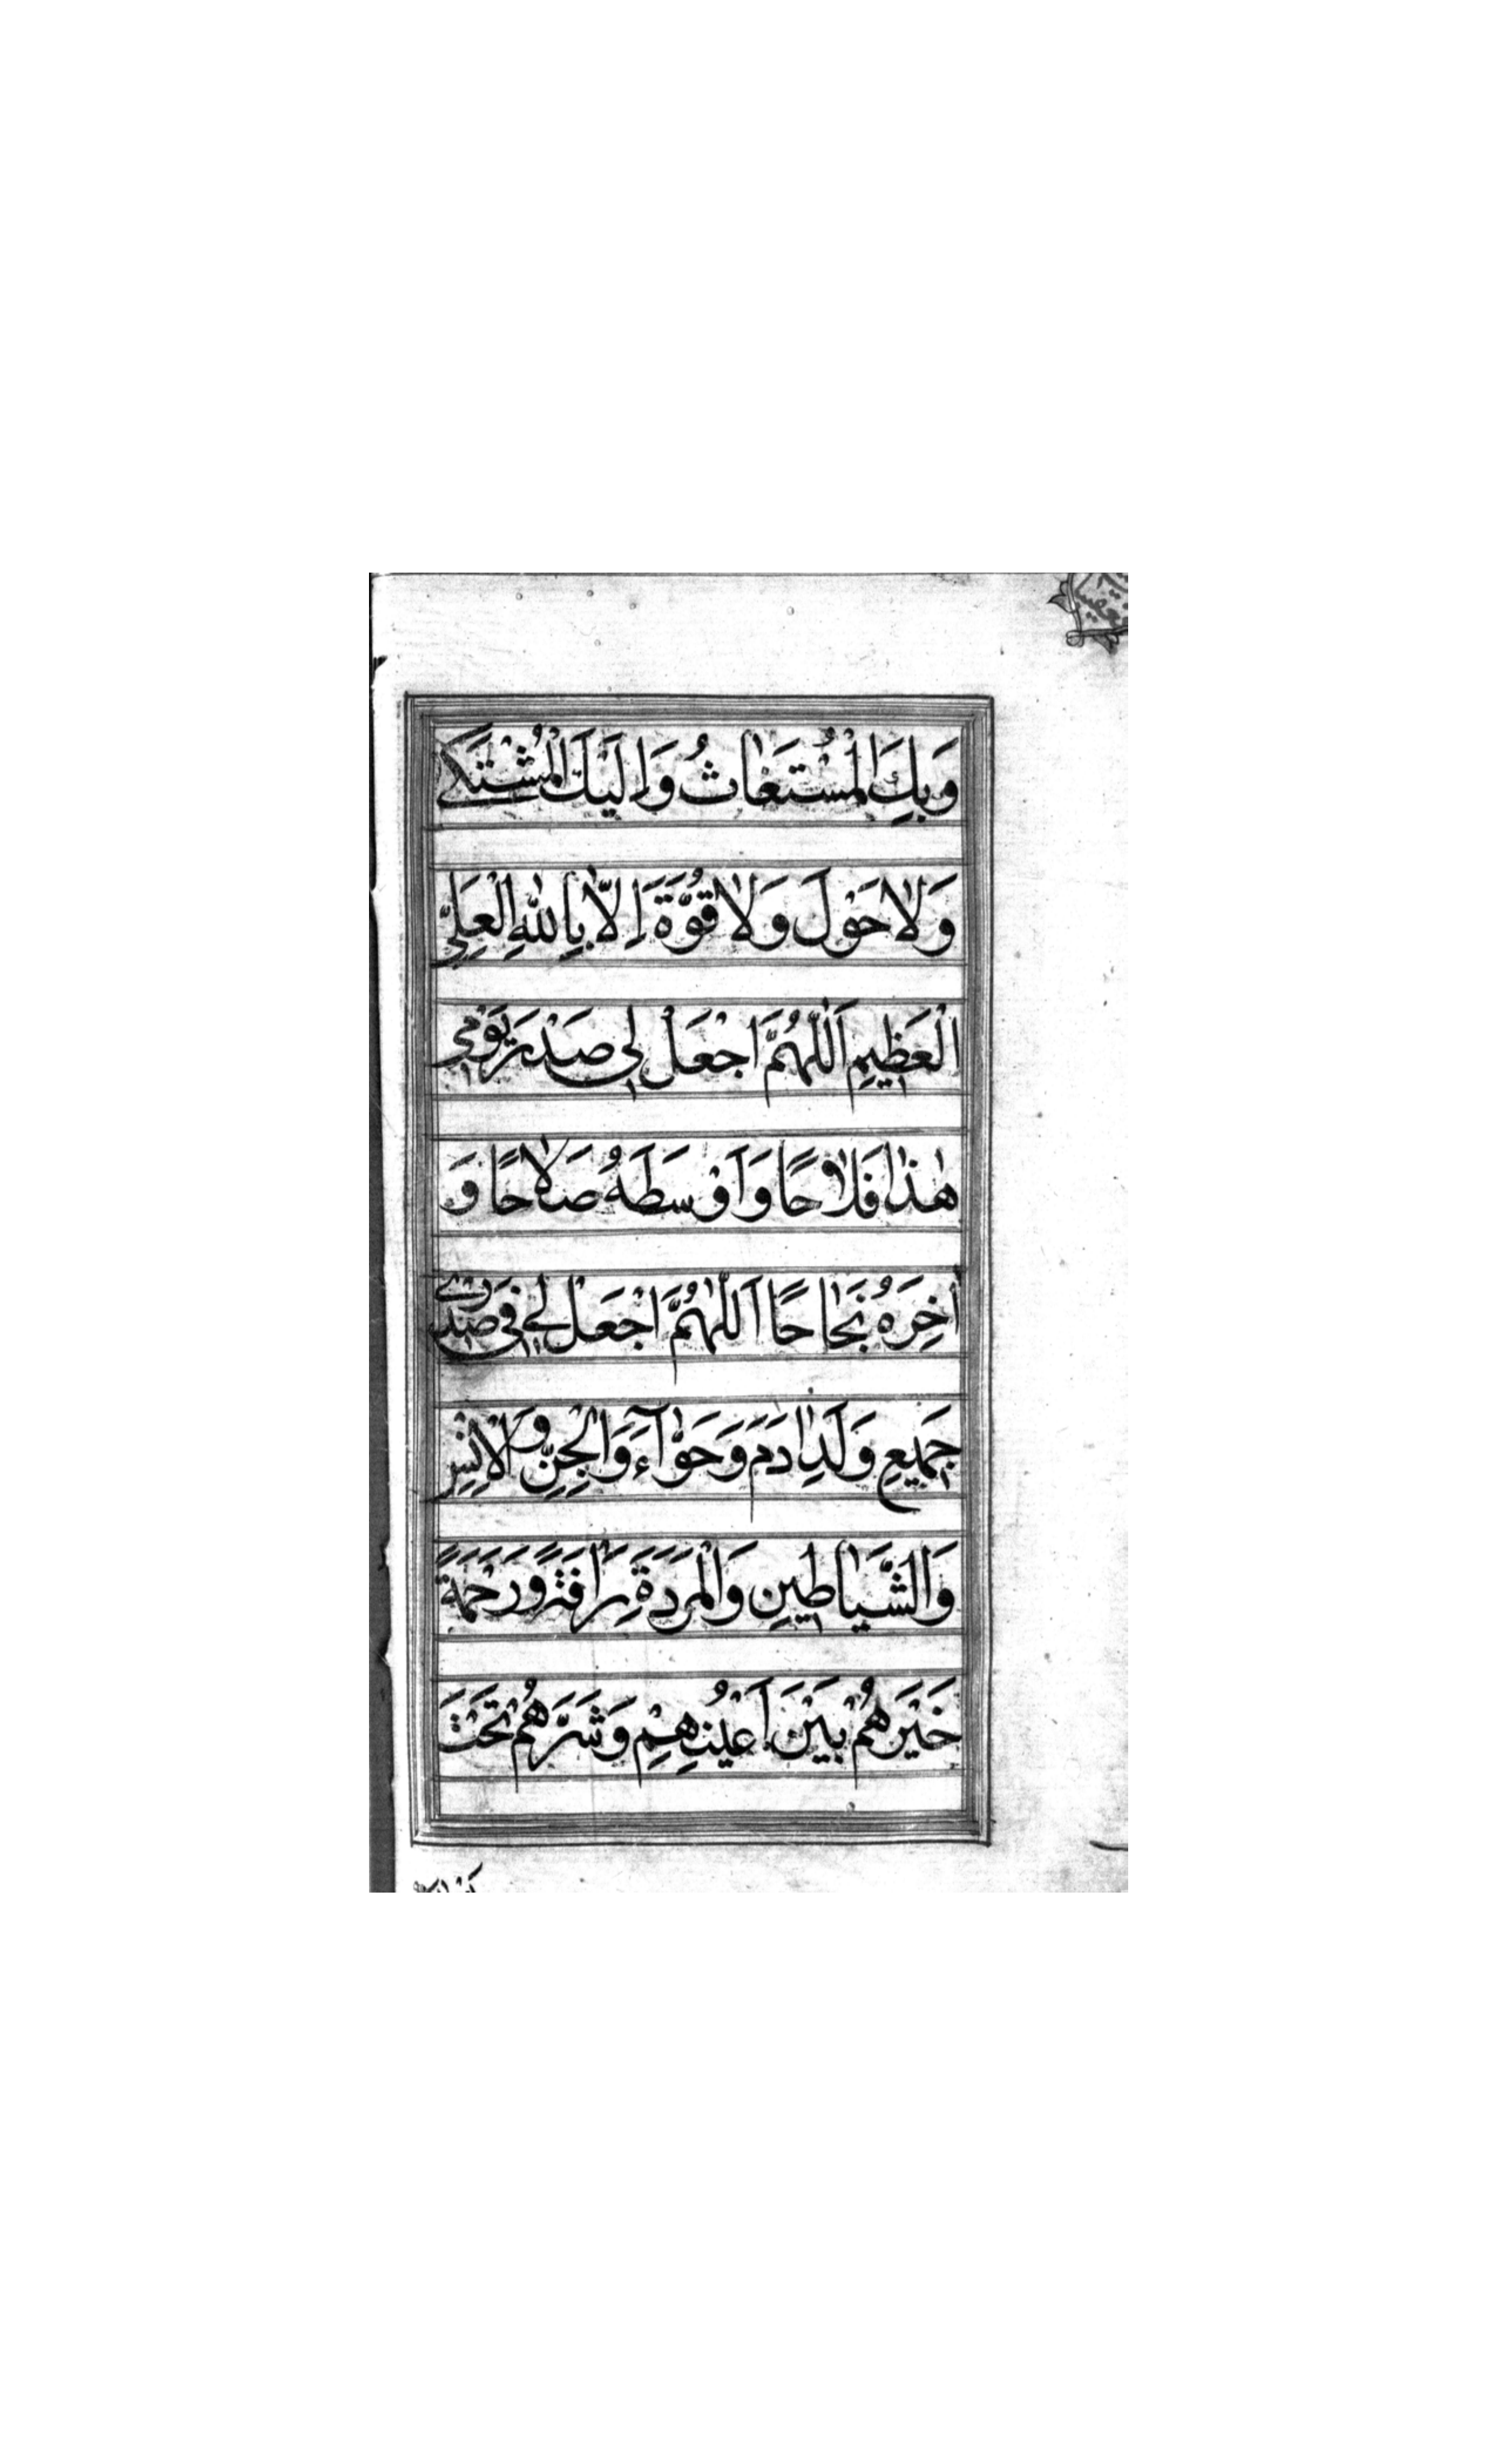 وَبِكَ الْمُسْتَغَاثُ وَاِلَيْكَ الْمُشْتَكٰي
وَلَا حَوْلَ وَلَا قُوَّةَ اِلَّا بِاللّٰهِ الْعَلِيِّ
الْعَظِيمِ اَللّٰهُمَّ اجْعَلْ لِي صَدْرَ يَوْمِي
هٰذَا فَلَاحًا وَاَوْسَطَهُ صَلَاحًا وَ
اٰخِرَهُ نَجَاحًا اَللّٰهُمَّ اجْعَلْ لِي فِي صَدْرِي
جَمِيعِ وَلَدِ اٰدَمَ وَحَوَّآءَ وَالْجِنِّ وَالْاِنْسِ
وَالشَّيَاطِينِ وَالْمَرَدَةِ رَافَةً وَرَحْمَةً
خَيْرَهُمْ بَيْنَ اَعْيُنِهِمْ وَشَرَّهُمْ تَحْتَ